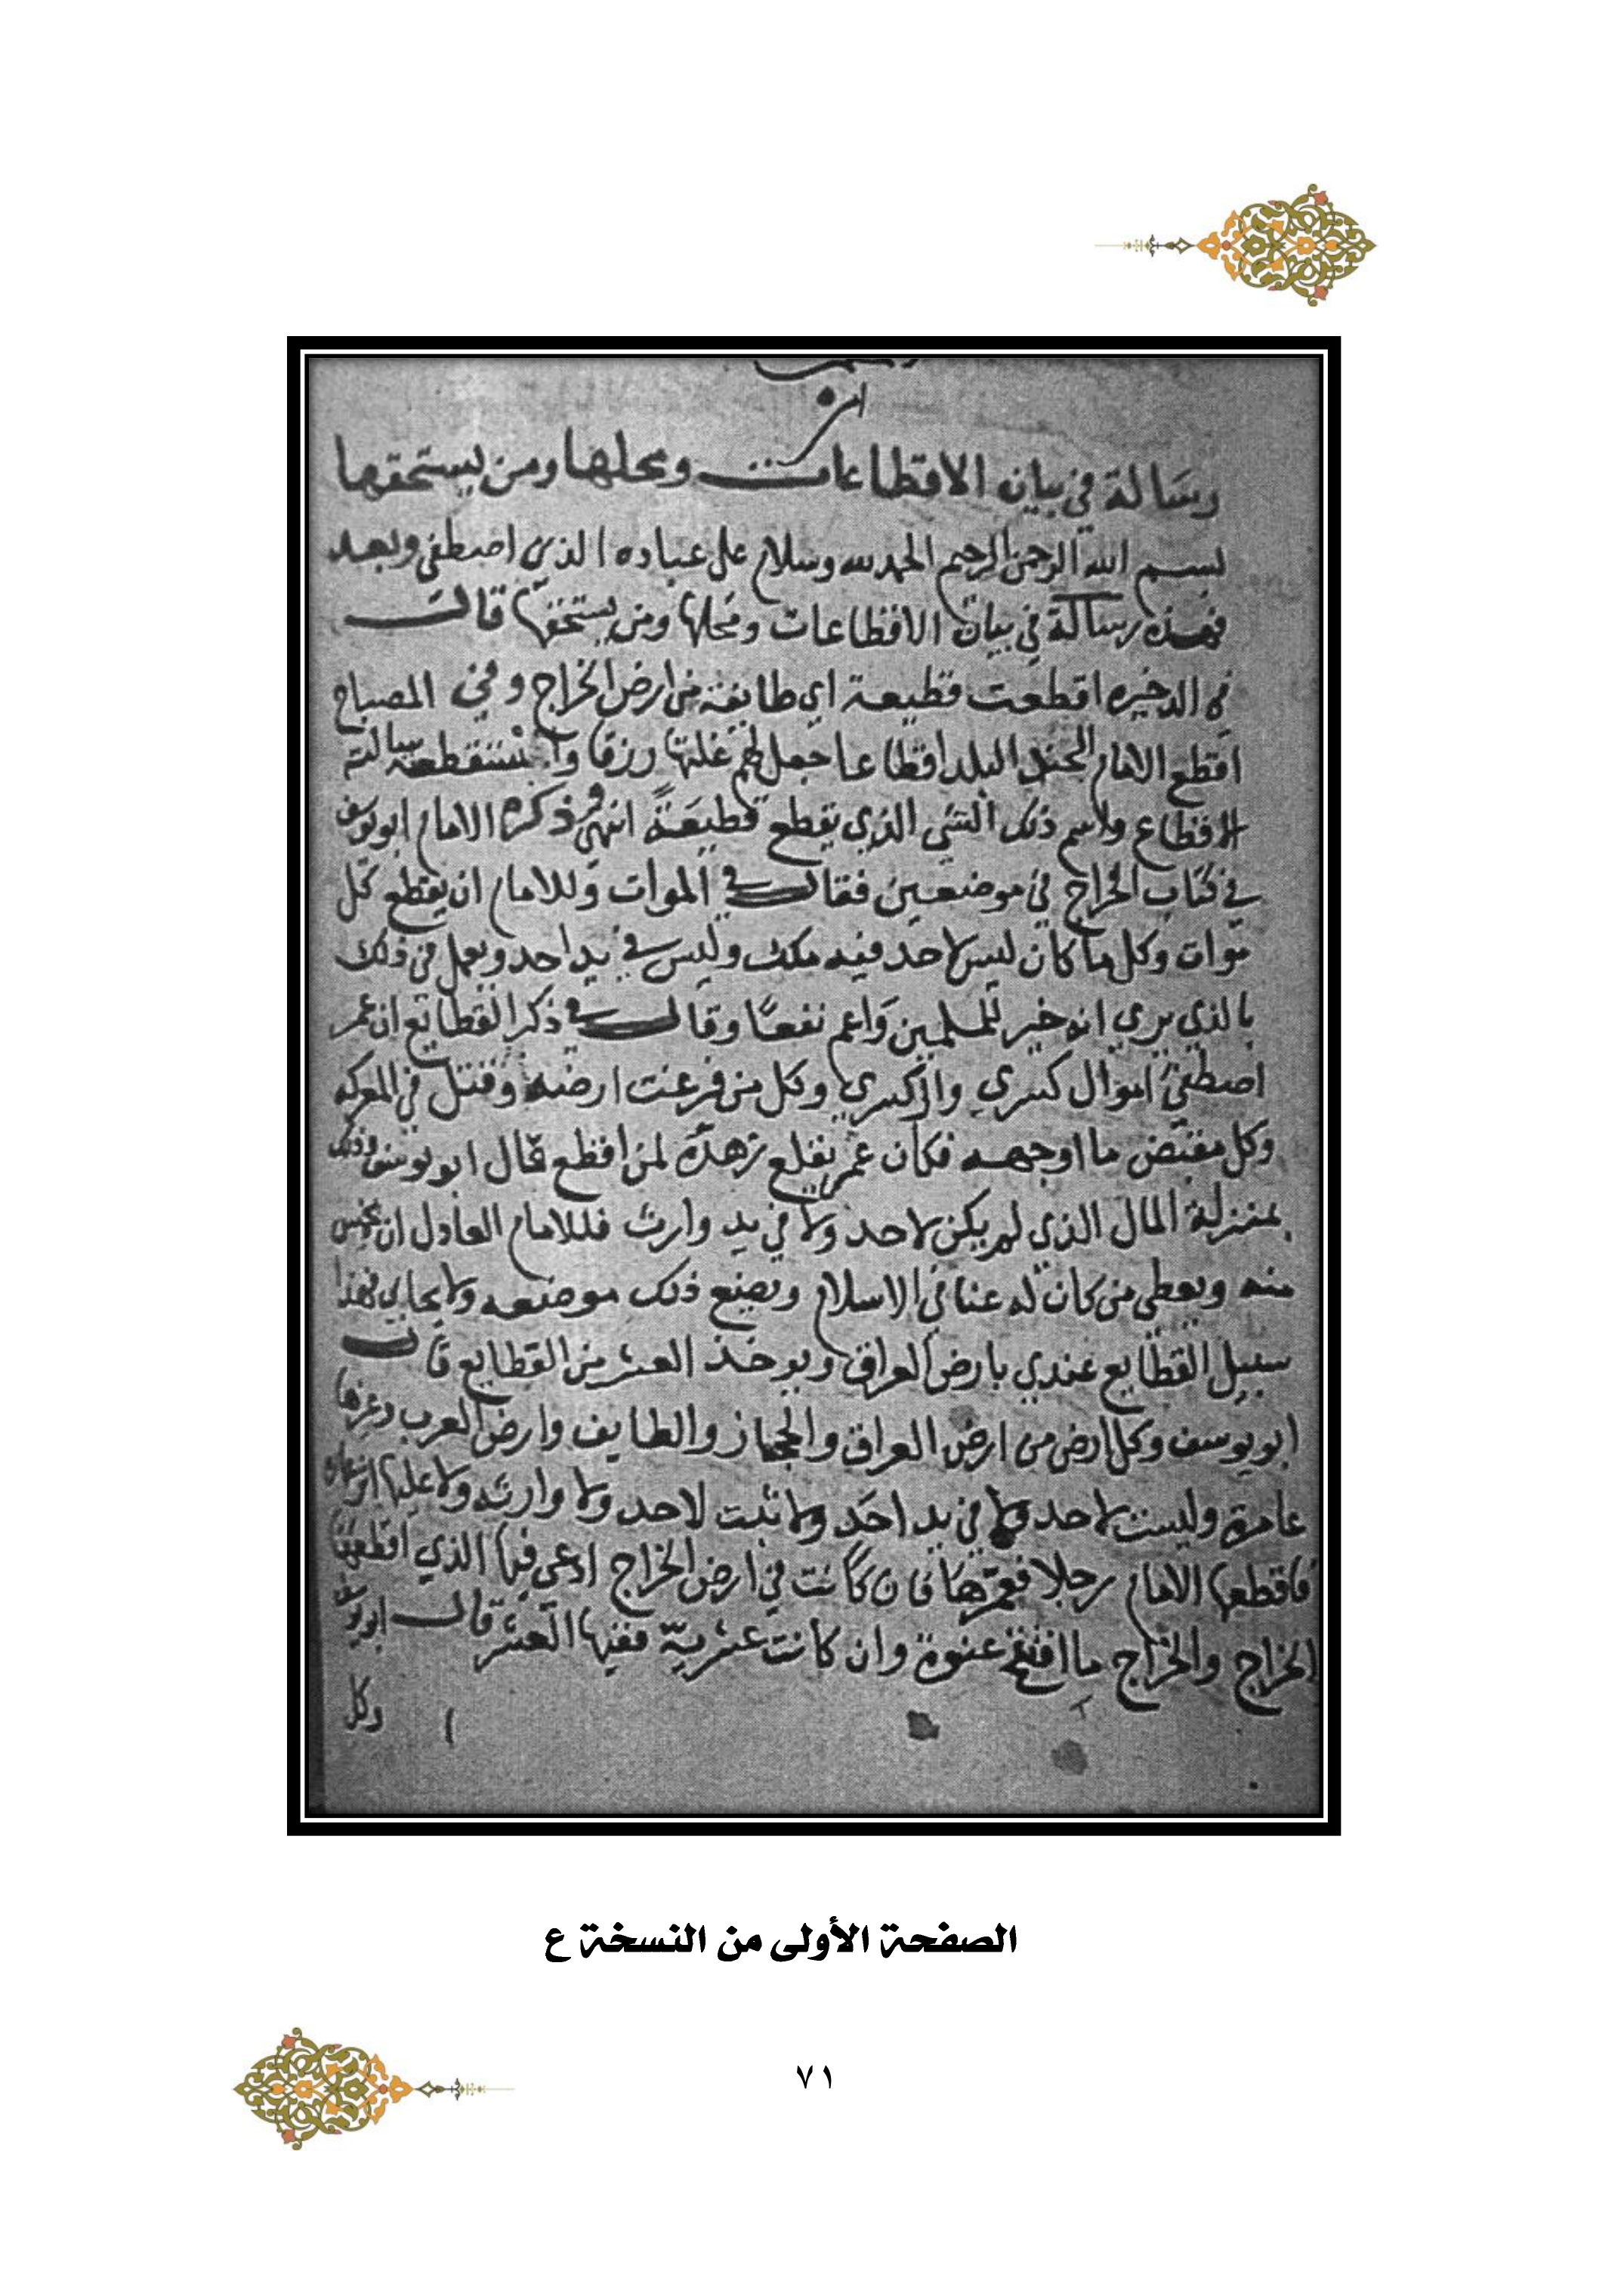 رسالة في بيان الاقطاعات ومحلها ومن يستحقها
بسم الله الرحمن الرحيم الحمد لله وسلام على عباده الذين اصطفى وبعد
فهذه رسالة في بيان الاقطاعات ومحلها ومن يستحقها قال
في الدخيره اقطعت قطيعة اي طائفة من ارض الخراج وفي المصباح
اقطع الامام الجند البلد اقطاعا جعل لهم غلتها رزقا سالته
الاقطاع واسم ذلك الشي الذي يقطع قطيعة انتهى وذكره الامام ابو يوسف
في كتاب الخراج في موضعين فقال في الموات وللامام ان يقطع كل
موات وكل ما كان ليس لاحد فيه ملك وليس في يد احد ويعمل في ذلك
بالذي يرى انه خير للمسلمين واعم نفعا وقال في ذكر القطايع ان عمر
اصطفى اموال كسرى وال كسرى وكل من فر عن ارضه وقتل في المعركه
وكل مغيض ما او اجمه فكان عمر يقطع هذه لمن اقطع قال ابو يوسف وذلك
بمنزلة المال الذي لم يكن لاحد ولا في يد وارث فللامام العادل ان يجيز
منه ويعطي من كان له عنا في الاسلام ويضع ذلك موضعه ولا يحابي فهذا
سبيل القطايع عندي بارض العراق ويوخذ العشر من القطايع قال
ابو يوسف وكل ارض من ارض العراق والحجاز والطايف وارض العرب وغيرها
عامرة وليست لاحد ولا في يد احد ولا لاحد ولا وارثه ولا عليها اثر عمارة
فاقطعها الامام رجلا فعمرها فان كانت في ارض الخراج ادى فيها الذي اقطعها
الخراج والخراج ما افتتح عنوة وان كانت عشرية ففيها العشر قال ابو يوسف
وكل
الصفحة الأولى من النسخة ع
٧١